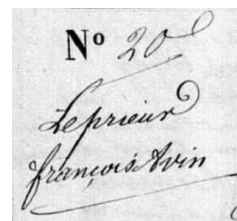 Nº 20
Leprieur
françois Avin